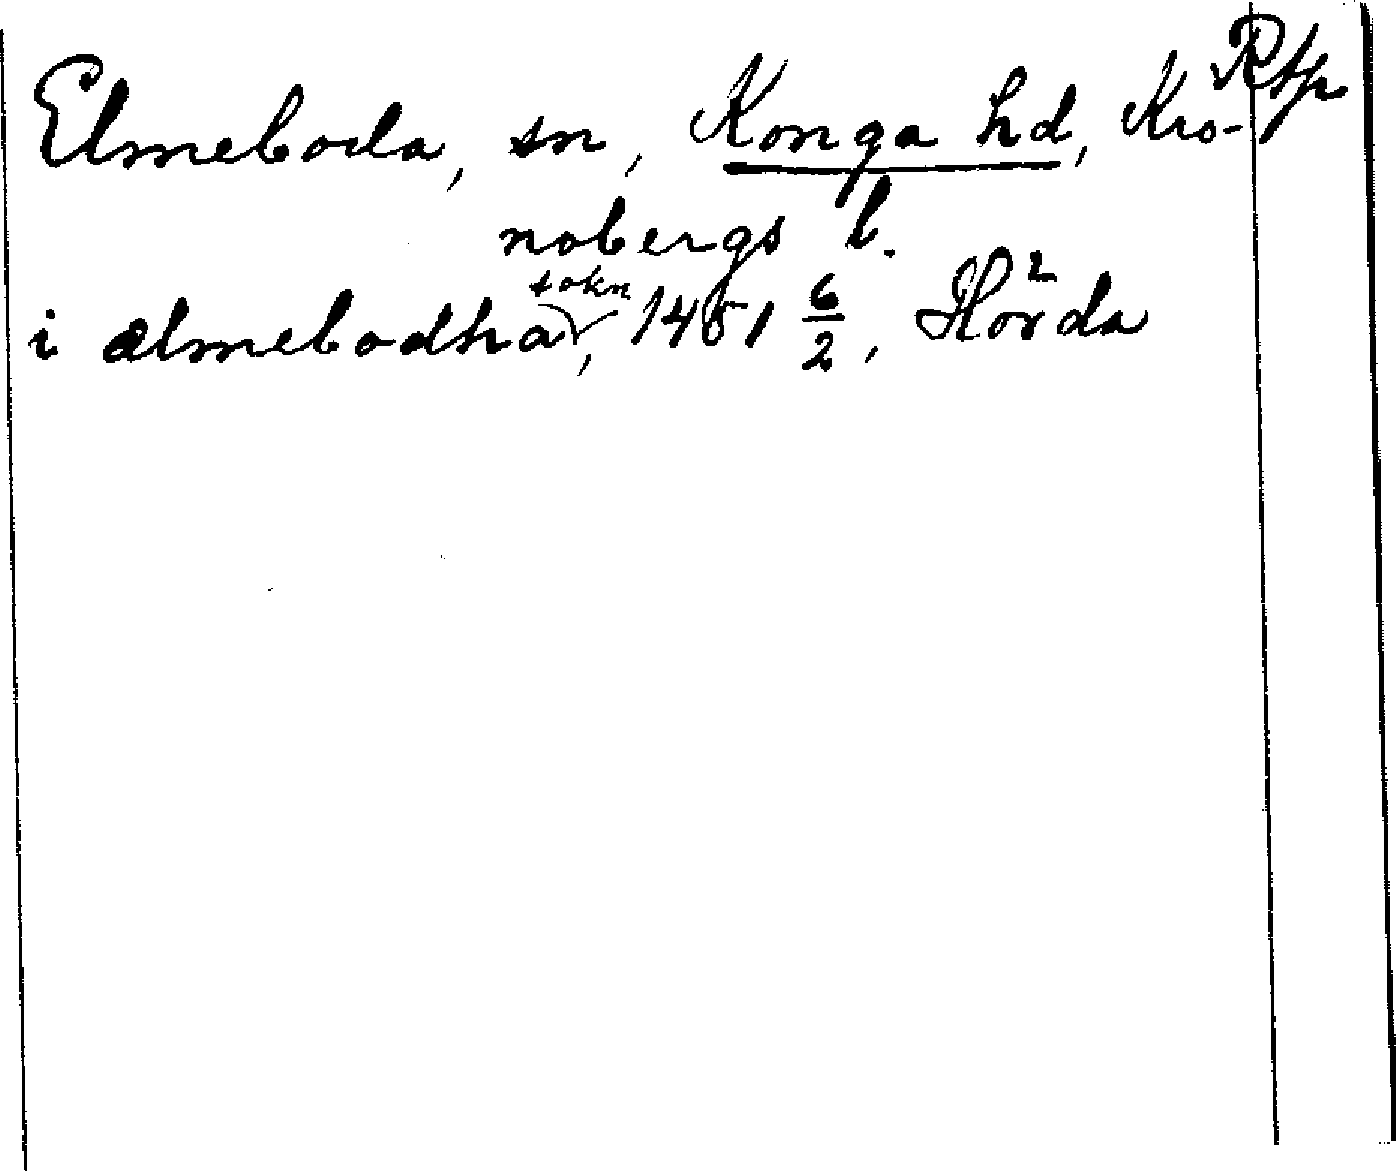 Rtp
Elmeboda, sn, Konga hd, Kro-
nobergs l.
i ælmebodha sokn, 1451 6/2, Hörda